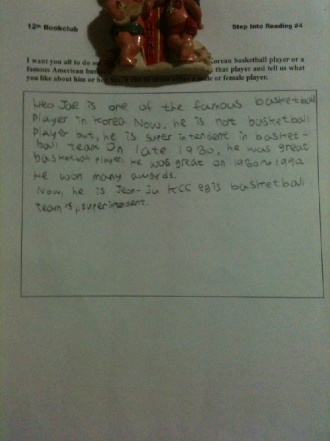 12th Bookclub
Step Into Reading #4
I want you all to do so orean basketball player or a
famous American bas that player and tell us what
you like about him or her. le or female player.
Heo Jae is one of the famous basketball
player in Korea Now, he is not busketball
player but, he is super intensent in basket-
ball team On late 1980, he was great
basketball player. He was great on 1980~1992
He won many awards.
Now, he is Jeon-Ju KCC egis basketball
team's superintensent.